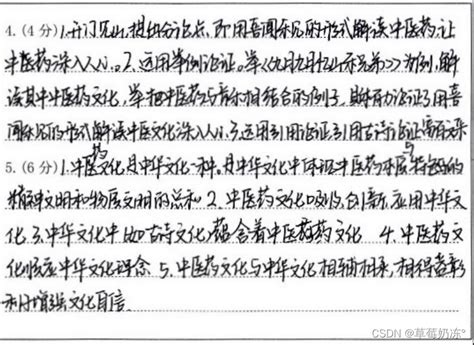 4.(4分)1.开门见山,提出分论点,即用喜闻乐见的形式解读中医药,让
中医药深入人心。2.运用举例论证。举《九月九日忆山东兄弟》为例,解
读其中中医药文化,举把中医药与音乐相结合的例子,鲜有力论证了用喜
闻乐见的形式解读中医文化深入人心.3.运用引用论证,引用古诗论证
5.(6分)1.中医药文化是中华文化一种.是中华文化中体现中医药本质与特色的
精神文明和物质文明的总和 2.中医药文化吸收,创新,应用中华文
化 3.中华文化中(如古诗文化)蕴含着中医药文化 4.中医药文
化顺应中华文化理念 5.中医药文化与中华文化相辅相承,相得益彰
利于增强文化自信.
CSDN @草莓奶冻°